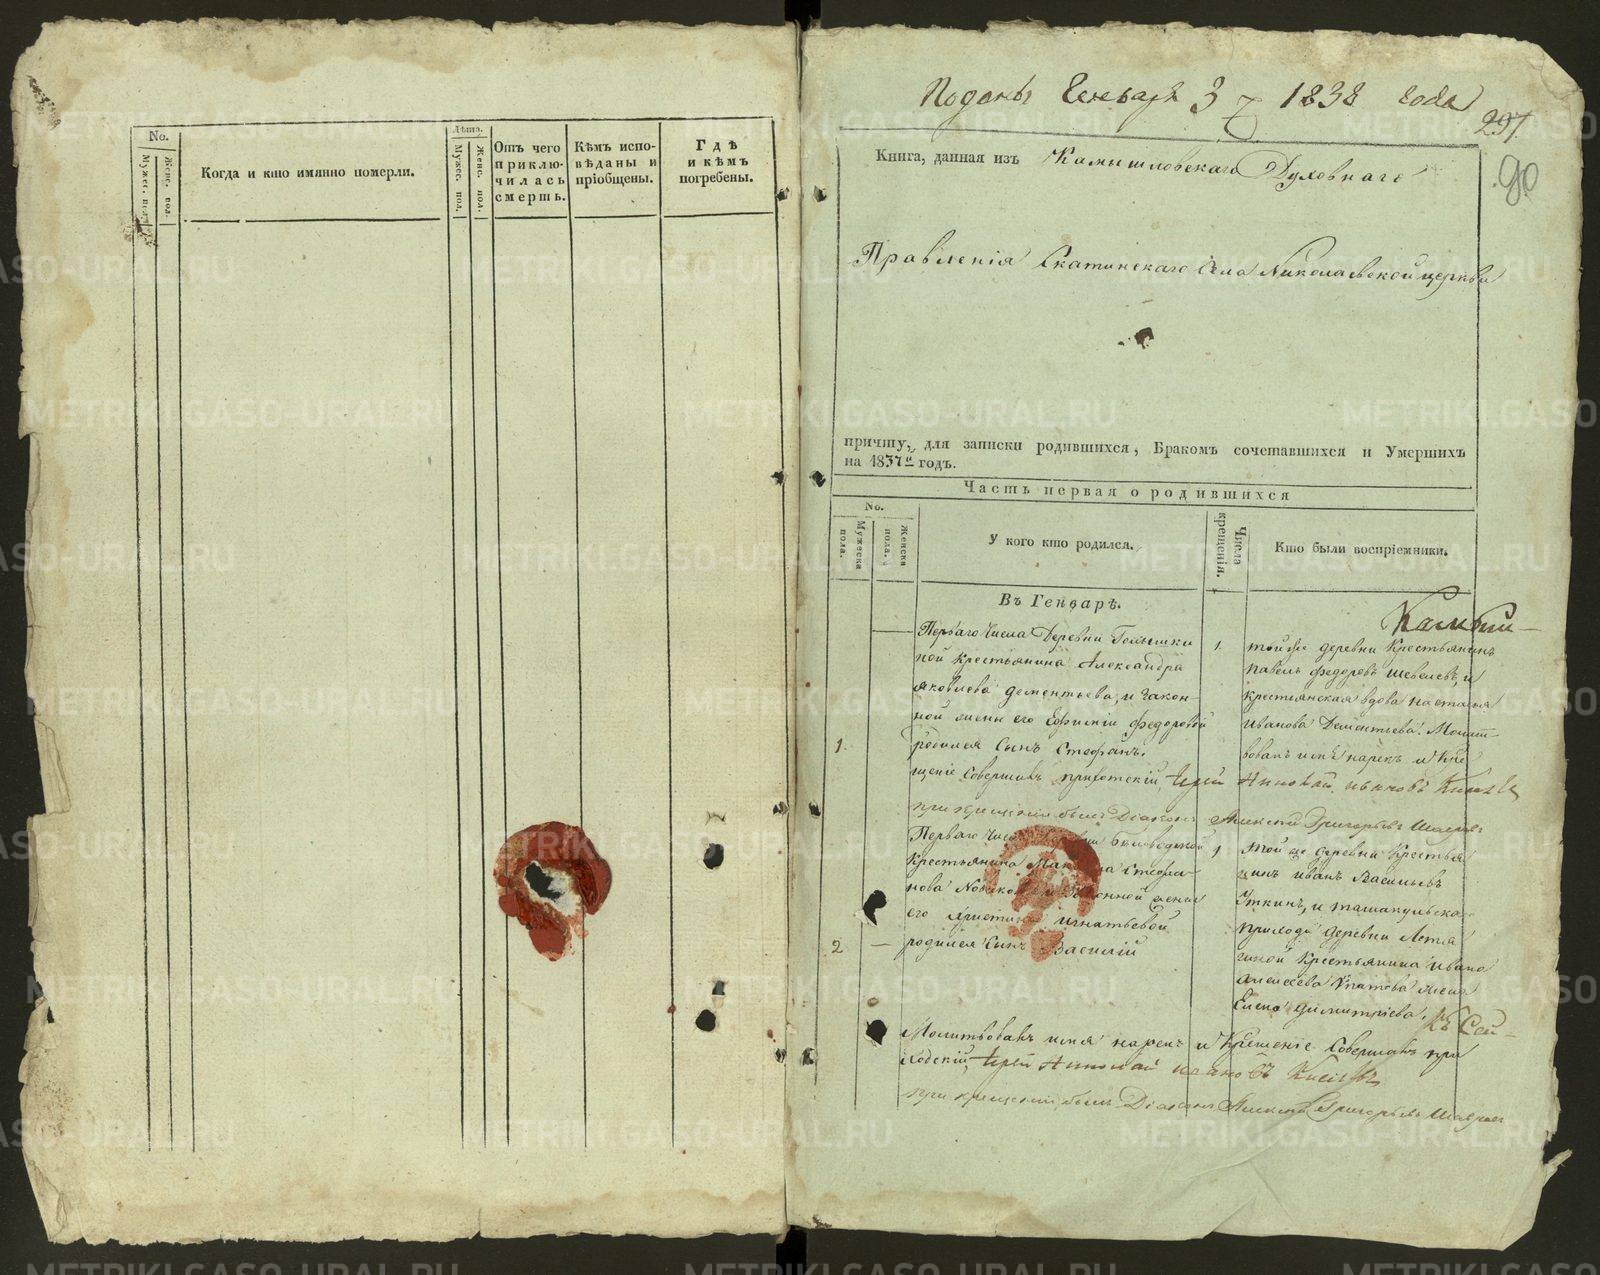 No.
Мужес. пол.
Женс. пол.
Когда и кто имянно померли.
Лѣта.
Мужес. пол.
Женс. пол.
Отъ чего приключилась смерть.
Кѣмъ исповѣданы и пріобщены.
Гдѣ и кѣмъ погребены.
Поданы Генваря 3 1838 года
297.
90
Книга, данная изъ Камышловскаго Духовнаго
Правленія Скатинскаго села Николаевской церкви
причту, для записки родившихся, Бракомъ сочетавшихся и Умершихъ
на 1837й годъ.
Часть первая о родившихся
No.
Мужеска пола.
Женска пола.
У кого кто родился.
Числа крещенія.
Кто были воспріемники.
Въ Генварѣ.
Перваго числа Деревни
ной крестьянина Александра
Яковлева Дементьева, и закон-
ной жены его Ефиміи Федоровой
1. родился сынъ Стефанъ.
1. той же деревни Крестьянинъ
Павелъ Федоровъ Шевелевъ, и
крестьянская вдова Настасья
Иванова Дементьева. Молит-
вовалъ имя нарекъ и Кре
щеніе совершилъ приходскій Іерей Николай Ивановъ
при крещеніи былъ Діаконъ Алексей Григорьевъ
Перваго числа Деревни
Крестьянина Стефа-
нова и законной жены
его Христины Игнатьевой
2 — родился сынъ Василій
1 той же деревни Крестья
нинъ Иванъ Васильевъ
Уткинъ, и
прихода деревни
Крестьянина Ивана
Алексеева Ипатова жена
Елена Димитріева.
Молитвовалъ имя нарекъ и Крещеніе совершилъ при
ходскій Іерей Николай Ивановъ
при крещеніи былъ Діаконъ Алексей Григорьевъ
METRIKI.GASO-URAL.RU